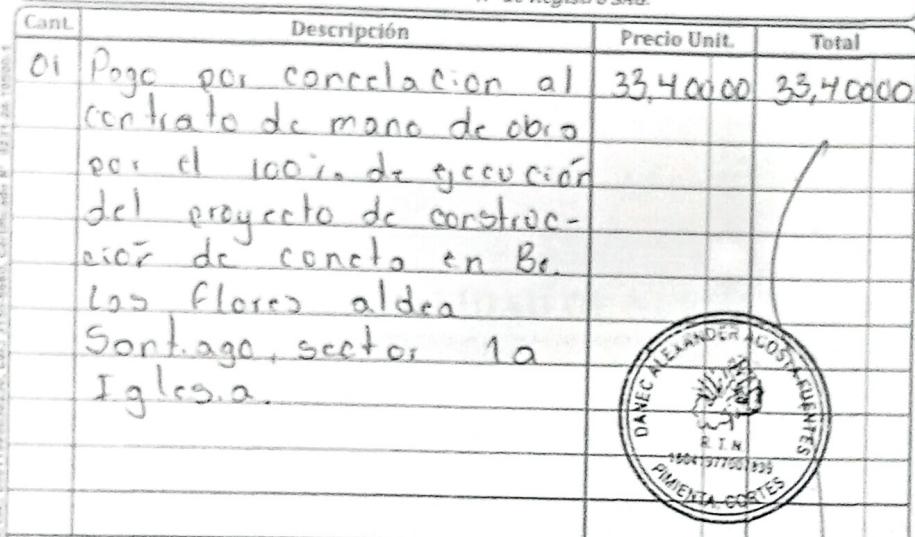 Cant. Descripción Precio Unit. Total
01 Pago por cancelacion al 33,400 00 33,400 00
contrato de mano de obra
por el 100% de ejecución
del proyecto de construc-
ción de caneta en Bo.
Las flores aldea
Santiago, sector la
Iglesia.
DANEC ALEXANDER ACOSTA FUENTES
R.T.N.
PIMIENTA, CORTES